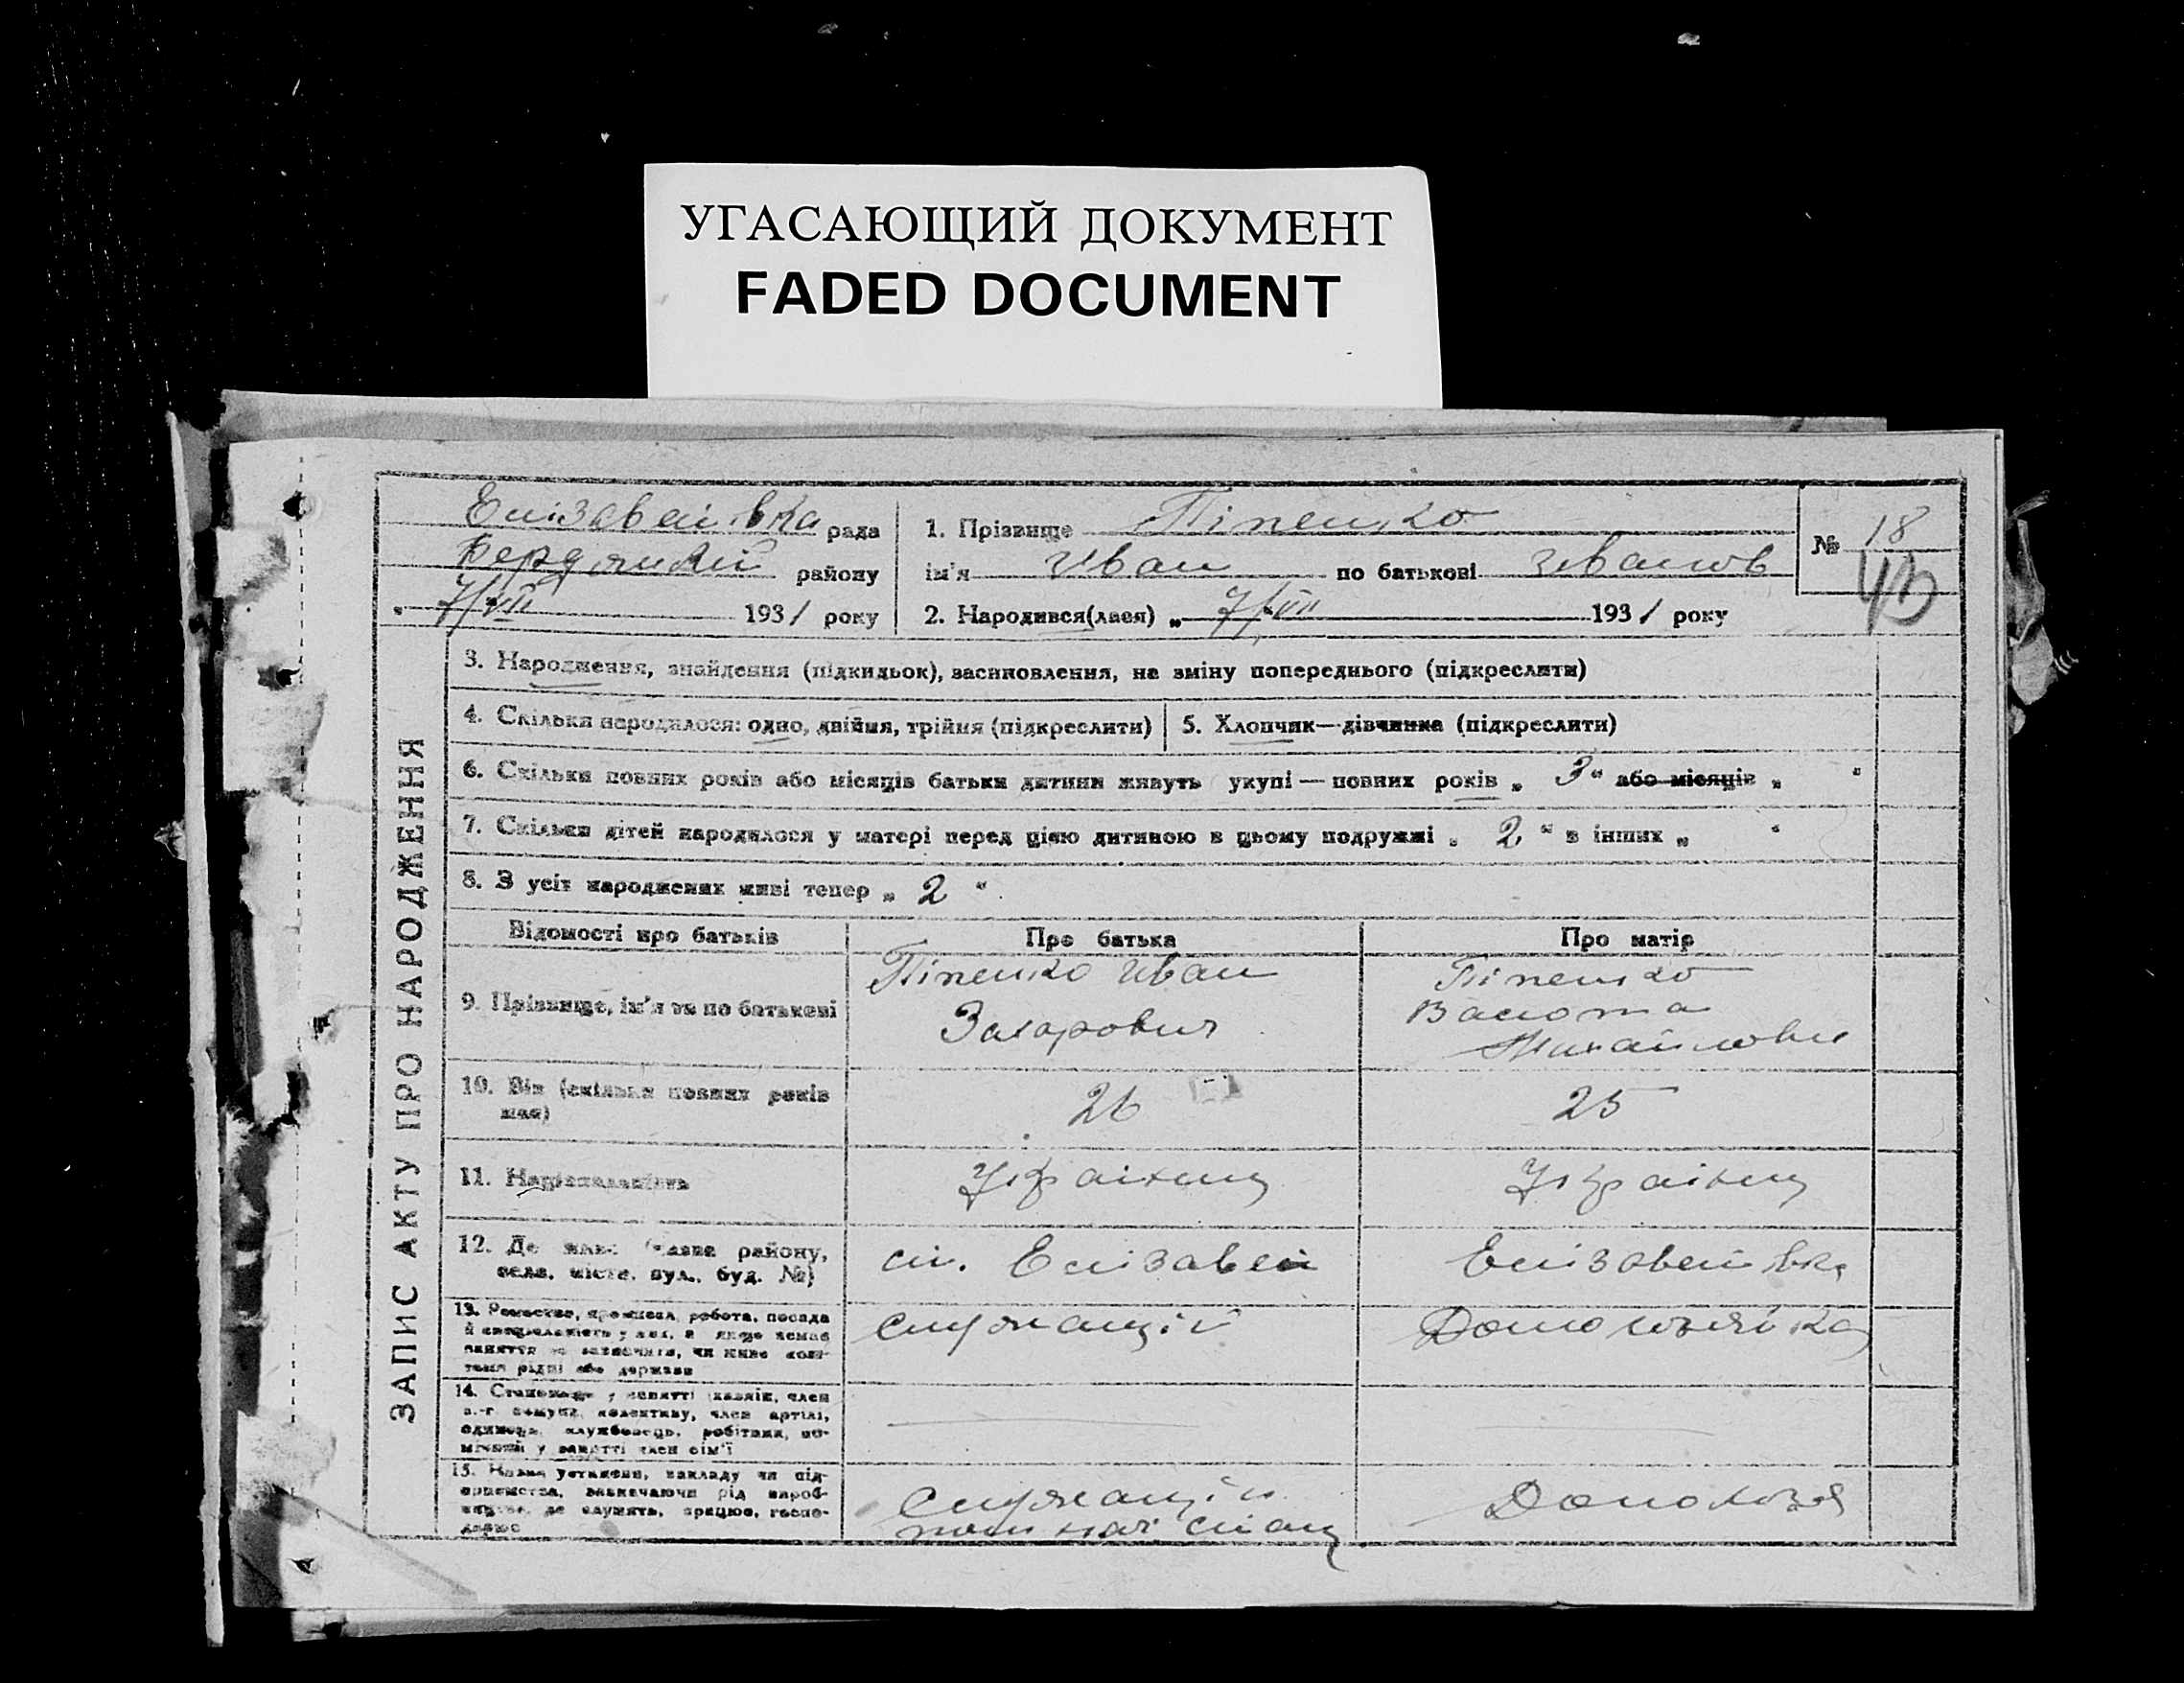 УГАСАЮЩИЙ ДОКУМЕНТ
FADED DOCUMENT
Елізаветівка рада
району
7/VII 1931 року
1. Прізвище Піпенко
ім'я Иван по батькові Иванов
2. Народився(лася) „ 7/VII 1931 року
№ 18
ЗАПИС АКТУ ПРО НАРОДЖЕННЯ
3. Народження, знайдення (підкидьок), засиновлення, на зміну попереднього (підкреслити)
4. Скільки народилося: одно, двійня, трійня (підкреслити)
5. Хлопчик—дівчинка (підкреслити)
6. Скільки повних років або місяців батьки дитини живуть укупі — повних років „ 3 “ або місяців „ “
7. Скільки дітей народилося у матері перед цією дитиною в цьому подружжі „ 2 “ в інших „ “
8. З усіх народжених живі тепер „ 2 “
Відомості про батьків
Про батька
Про матір
9. Прізвище, ім'я та по батькові
Піпенко Иван
Захарович
Піпенко
10. Вік (скільки повних років
має)
26
25
11. Національність
Українц
Українц
12. Де живе (назва району,
села, місте, вул., буд. №)
сл. Елізавет
Елізаветівка
13. Ремество, промисел, робота, посада
й спеціяльність у них, а якщо немає
заняття то зазначити, чи живе кош-
том рідні або держави
служащій
Домохозяйка
14. Становище у занятті (хазяїн, член
с.-г. комуни, колективу, член артілі,
одинець, службовець, робітник, по-
мічний у занятті член сім'ї
15. Назва установи, закладу чи під-
приємства, зазначаючи рід вироб-
ництва, де служить, працює, госпо-
дарює
служащій
Домохозя